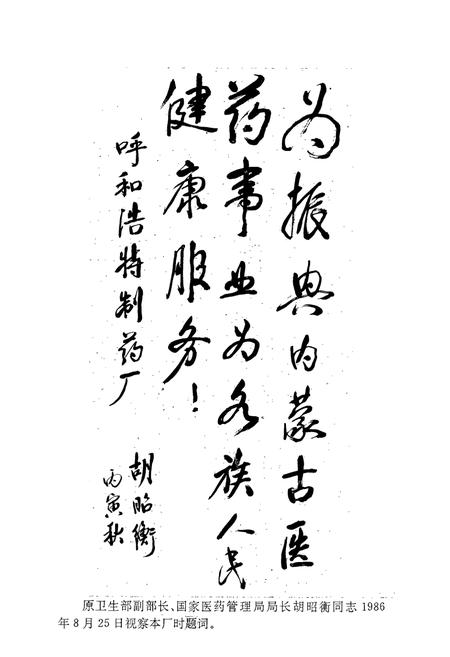 为振兴内蒙古医
药事业为各族人民
健康服务！
呼和浩特制药厂
胡昭衡
丙寅秋
原卫生部副部长、国家医药管理局局长胡昭衡同志1986
年8月25日视察本厂时题词。